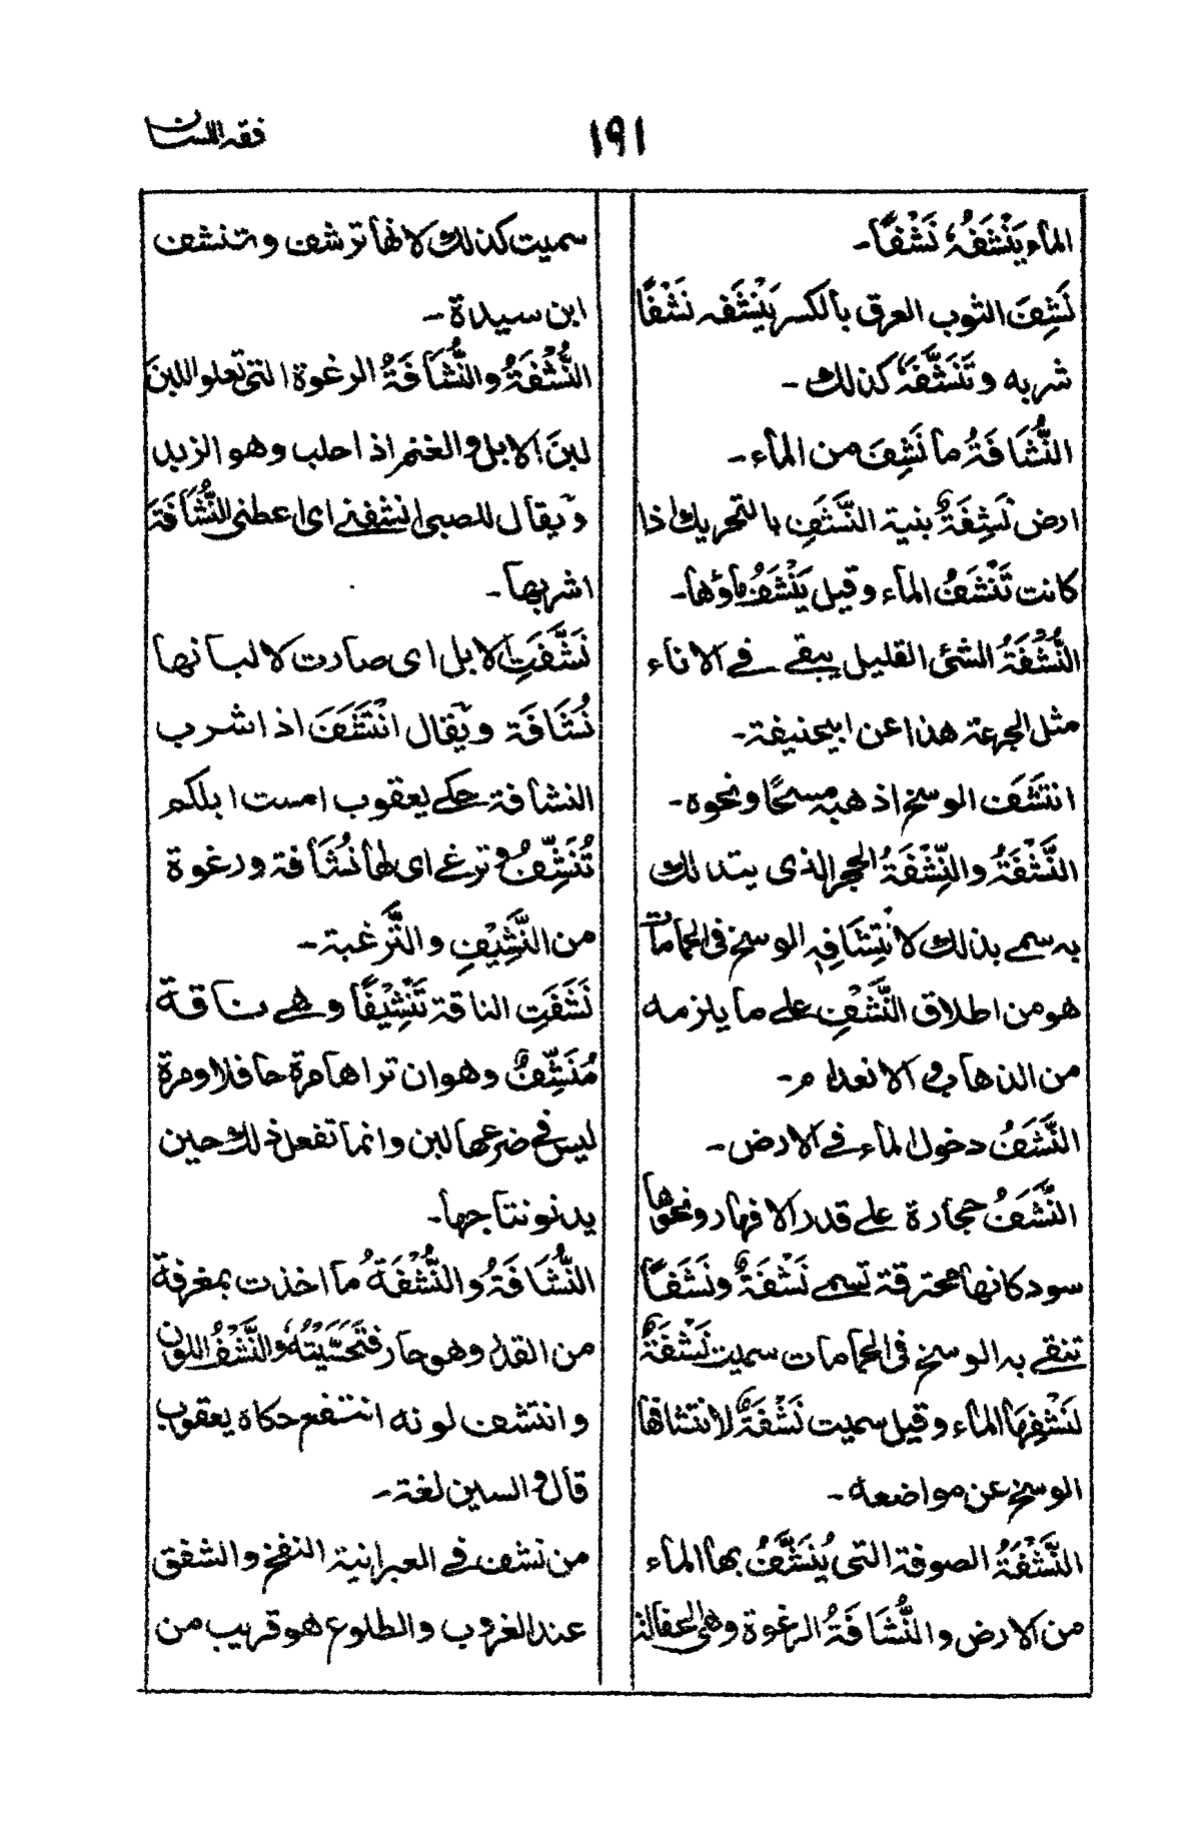 ١٩١
فقه اللسان
الماء يَنْشَفُهُ نَشْفًا۔
نَشِفَ الثوب العرق بالكسر يَنْشَفه نَشْفًا
شربه وتَنَشَّفَهُ كذلك۔
النُّشَافَةُ ما نَشِفَ من الماء۔
ارض نَشِفَةٌ بنية النَّشَفِ بالتحريك اذا
كانت تَنْشَفُ الماء وقيل يَنْشَفُ ماؤها۔
النُّشْفَةُ الشئ القليل يبقى في الاناء
مثل الجرعة هذا عن ابيحنيفة۔
انتَشَفَ الوسخ اذهبه مسحًا ونحوه۔
النَّشْفَةُ والنِّشْفَةُ الحجر الذى يتدلك
به سمى بذلك لانْتِشَافِهِ الوسخ فى الحمامات
هو من اطلاق النَّشْفِ على ما يلزمه
من الذهاب والانعدام۔
النَّشَفُ دخول الماء فى الارض۔
النَّشَفُ حجارة على قدر الافهار ونحوها
سود كانها محترقة تسمى نَشْفَةٌ ونَشَفًا
تنقى به الوسخ فى الحمامات سميت نَشْفَةٌ
لنَشْفِهَا الماء وقيل سميت نَشْفَةٌ لانتشافها
الوسخ عن مواضعه۔
النَّشْفَةُ الصوفة التى يُنَشَّفُ بها الماء
من الارض والنُّشَافَةُ الرغوة وهى الجفالة
سميت كذلك لانها ترشف وتنشف
ابن سيدة۔
النُّشْفَةُ والنُّشَافَةُ الرغوة التى تعلو اللبن
لبنَ الابل والغنم اذا حلب وهو الزبد
ويقال للصبى انشفنى اى اعطنى النُّشَافَةَ
اشربها۔
نَشَّفَتِ الابل اى صارت لالبانها
نُشَافَة ويقال انْتَشَفَ اذا شرب
النشافة حكى يعقوب امست ابلكم
تُنَشِّفُ وترغى اى لها نُشَافة ورغوة
من النَّشِيْفِ والتَّرغية۔
نَشَفَتِ الناقة تَنْشِيْفًا وهى ناقة
مُنَشِّفٌ وهو ان تراها مرة حافلا ومرة
ليس فى ضرعها لبن وانما تفعل ذلك حين
يدنو نتاجها۔
النُّشَافَةُ والنُّشْفَةُ ما اخذت بمغرفة
من القدر وهو حار فتَحَسَّيْتَهُ والنَّشْفُ اللون
وانتشف لونه انتقع حكاه يعقوب
قال والسين لغة۔
من نشف فى العبرانية النفخ والشفق
عند الغروب والطلوع هو قريب من